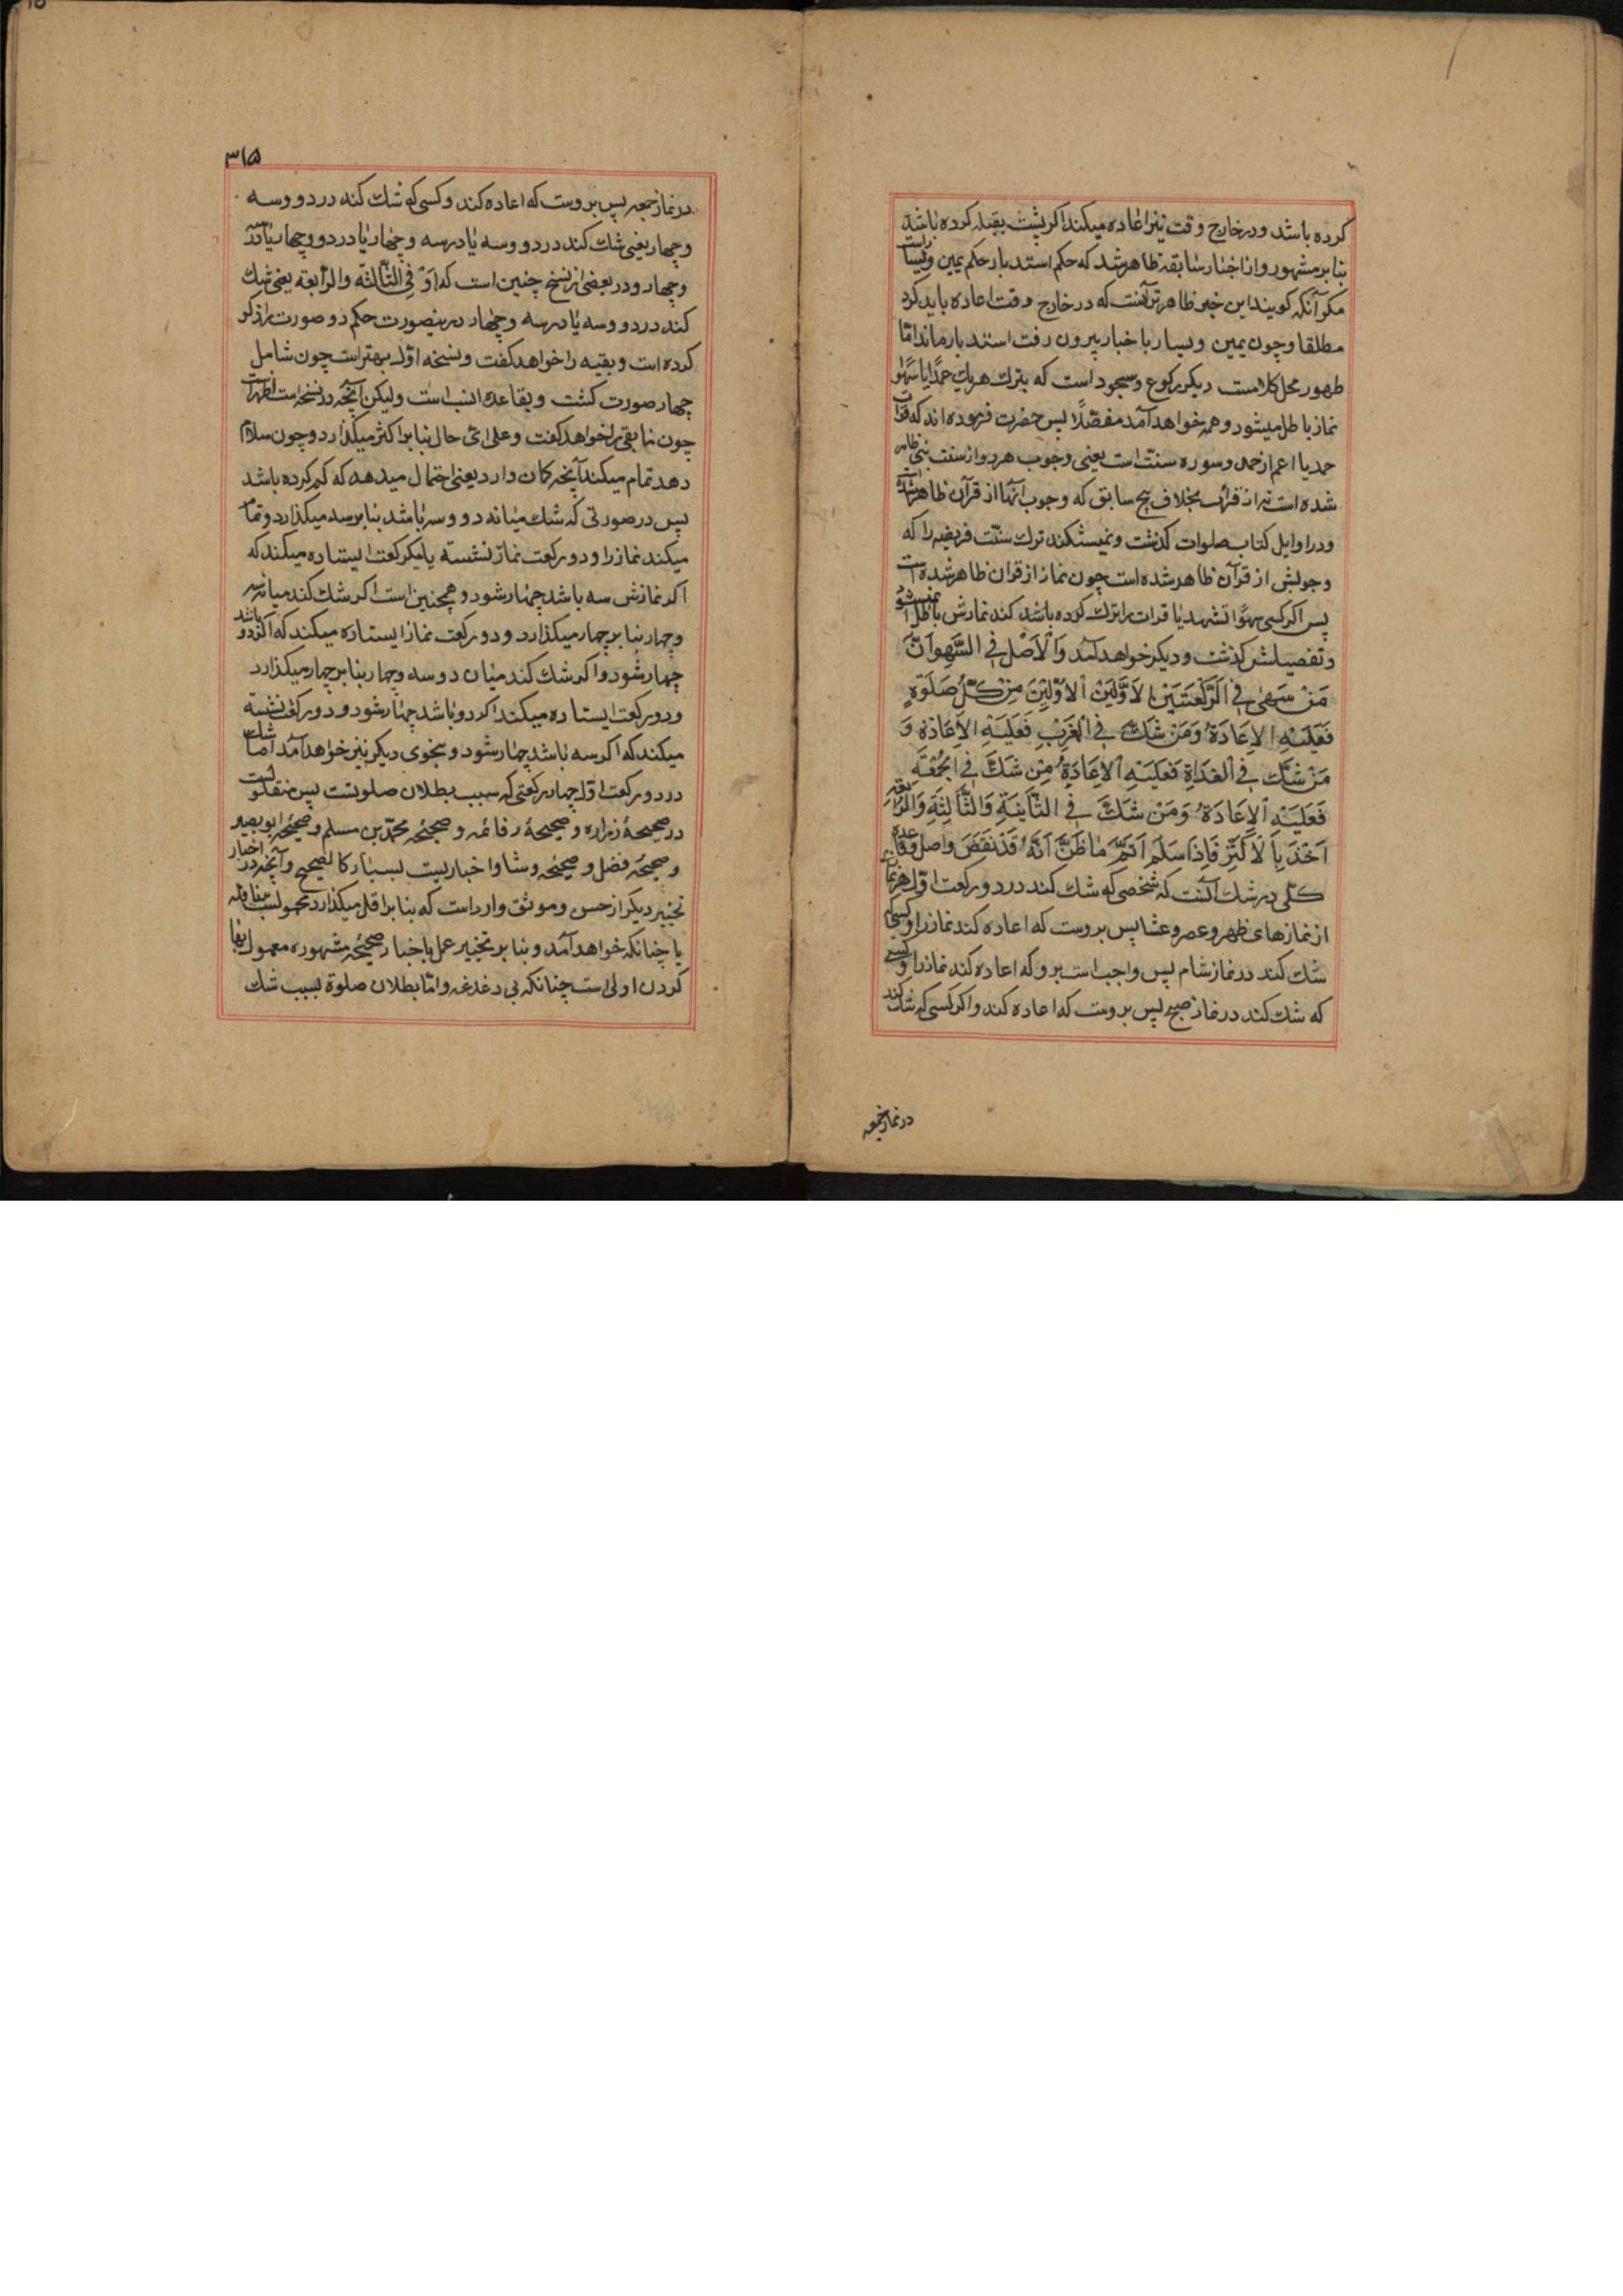 کرده باشد و در خارج وقت نیز اعاده میکند اکر پشت بقبله کرده باشد
بنا بر مشهور و از اخبار سابقه ظاهر شد که حکم استدبار حکم یمین و یسار است
مکر آنکه کویند این خبر ظاهرتر آنست که در خارج وقت اعاده باید کرد
مطلقا و چون یمین و یسار باخبار بیرون رفت استدبار ماند امّا
طهور محل کلامست دیکر رکوع و سجود است که بترك هریك عمدًا یا سهوًا
نماز باطل میشود و همه خواهد آمد مفصّلًا پس حضرت فرموده اند که قرائت
حمد یا اعم از حمد و سوره سنّت است یعنی وجوب هر دو از سنّت نبی ظاهر
شده است نه از قرآن بخلاف پنج سابق که وجوب آنها از قرآن ظاهر شده است
و در اوایل کتاب صلوات کذشت و نمیشکند ترك سنّت فریضه را که
وجوبش از قرآن ظاهر شده است چون نماز از قران ظاهر شده است
پس اکر کسی سهوًا تشهد یا قرات را ترك کرده باشد کند نمازش باطل نمیشود
و تفصیلش کذشت و دیکر خواهد آمد وَالْاَصْلُ فِی السَّهْوِ اَنَّ
مَنْ سَهیٰ فِی الرَّکْعَتَیْنِ الاَوَّلَیَیْنِ الاَوَّلَیَیْنِ مِنْ کُلِّ صَلَوةٍ
فَعَلَیْهِ الاِعَادَةُ وَمَنْ شَكَّ فِی الْمَغْرِبِ فَعَلَیْهِ الاِعَادَةُ وَ
مَنْ شَكَّ فِی الْغَدَاةِ فَعَلَیْهِ الاِعَادَةُ مِنْ شَكَّ فِی الْجُمُعَةِ
فَعَلَیْهِ الاِعَادَةُ وَمَنْ شَكَّ فِی الثَّانِیَةِ وَالثَّالِثَةِ وَالرَّابِعَةِ
اَخَذَ بِالْاَکْثَرِ فَاِذَا سَلَّمَ اَتَمَّ مَا ظَنَّ اَنَّهُ قَدْ نَقَصَ و اصل و قاعده
کلّی در شك آنست که شخصی که شك کند در دو رکعت اوّل هر نماز
از نمازهای ظهر و عصر و عشا پس بروست که اعاده کند نماز را و کسی که
شك کند در نماز شام پس واجب است برو که اعاده کند نماز را و کسی
که شك کند در نماز صبح پس بروست که اعاده کند و اکر کسی که شك کند
در نماز جمعه
۳۱۵
در نماز جمعه پس بروست که اعاده کند و کسی که شك کند در دو و سه
و چهار یعنی شك کند در دو و سه یا در سه و چهار یا در دو و چهار یا در دو سه
و چهار و در بعضی از نسخ چنین است که اَوْ فِی الثَّالِثَة والرّابعَة یعنی شك
کند در دو و سه یا در سه و چهار در ینصورت حکم دو صورت را ذکر
کرده است و بقیه را خواهد کفت و نسخه اوّل بهتر است چون شامل
چهار صورت کشت و بقاعده انسب است ولیکن آنچه در نسخه است اظهر است
چون مابقی را خواهد کفت و علی ای حال بنا بر اکثر میکذارد و چون سلام
دهد تمام میکند آنچه کمان دارد یعنی احتمال میدهد که کم کرده باشد
پس در صورتی که شك میانه دو و سه باشد بنا بر سه میکذارد و تمام
میکند نماز را و دو رکعت نماز نشسته یا یکرکعت ایستاده میکند که
اکر نمازش سه باشد چهار شود و همچنین است اکر شك کند میانه سه
و چهار بنا بر چهار میکذارد و دو رکعت نماز ایستاده میکند که اکر دو باشد
چهار شود و اکر شك کند میان دو سه و چهار بنا بر چهار میکذارد
و دو رکعت ایستاده میکند اکر دو باشد چهار شود و دو رکعت نشسته
میکند که اکر سه باشد چهار شود و بنحوی دیکر نیز خواهد آمد اما شك
در دو رکعت اوّل چهار رکعتی که سبب بطلان صلوتست پس منقولست
در صحیحهٔ زراره و صحیحهٔ رفاعه و صحیحه محمّد بن مسلم و صحیحه ابو بصیر
و صحیحه فضل و صحیحه وشا و اخبار یست بسیار کالصحیح و آنچه در اخبار
تخییر دیکر از حسن و موثق وارد است که بنا بر اقل میکذارد محمولست بنافله
یا چنانکه خواهد آمد و بنا بر تخییر عمل باخبار صحیحه مشهوره معمول بها
کردن اولی است چنانکه بی دغدغه و امّا بطلان صلوة بسبب شك